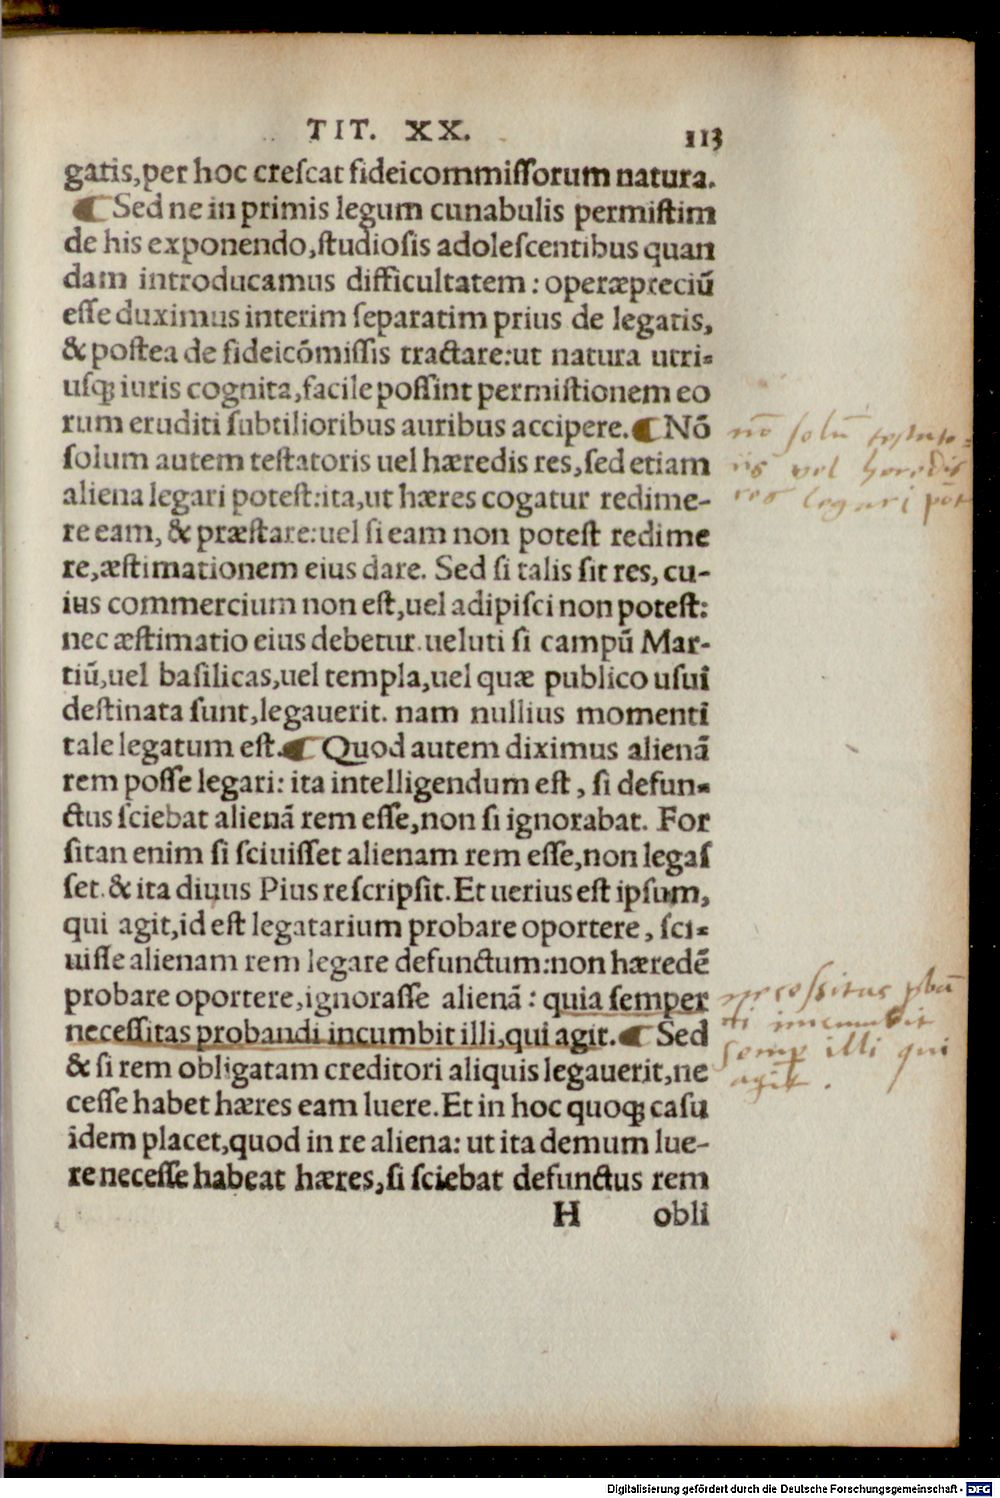 TIT. XX. 113
gatis,per hoc creſcat fideicommiſſorum natura.
¶ Sed ne in primis legum cunabulis permiſtim
de his exponendo,ſtudioſis adoleſcentibus quan
dam introducamus difficultatem: operæpreciũ
eſſe duximus interim ſeparatim prius de legatis,
& poſtea de fideicõmiſſis tractare:ut natura utri-
uſq; iuris cognita,facile poſſint permiſtionem eo
rum eruditi ſubtilioribus auribus accipere.¶ Nõ
ſolum autem teſtatoris uel hæredis res,ſed etiam
aliena legari poteſt:ita,ut hæres cogatur redime-
re eam, & præſtare:uel ſi eam non poteſt redime
re,æſtimationem eius dare. Sed ſi talis ſit res, cu-
ius commercium non eſt,uel adipiſci non poteſt:
nec æſtimatio eius debetur.ueluti ſi campũ Mar-
tiũ,uel baſilicas,uel templa,uel quæ publico uſui
deſtinata ſunt,legauerit. nam nullius momenti
tale legatum eſt.¶ Quod autem diximus alienã
rem poſſe legari: ita intelligendum eſt, ſi defun-
ctus ſciebat alienã rem eſſe,non ſi ignorabat. For
ſitan enim ſi ſciuiſſet alienam rem eſſe,non legaſ
ſet.& ita diuus Pius reſcripſit.Et uerius eſt ipſum,
qui agit,id eſt legatarium probare oportere, ſci-
uiſſe alienam rem legare defunctum:non hæredẽ
probare oportere,ignoraſſe alienã: quia ſemper
neceſſitas probandi incumbit illi,qui agit.¶ Sed
& ſi rem obligatam creditori aliquis legauerit,ne
ceſſe habet hæres eam luere.Et in hoc quoq; caſu
idem placet,quod in re aliena: ut ita demum lue-
re neceſſe habeat hæres,ſi ſciebat defunctus rem
H obli
nõ ſolũ teſtato-
ris vel heredis
res legari põt
neceſſitas ꝓbã
di incumbit
ſemꝑ illi qui
agit.
Digitalisierung gefördert durch die Deutsche Forschungsgemeinschaft - DFG